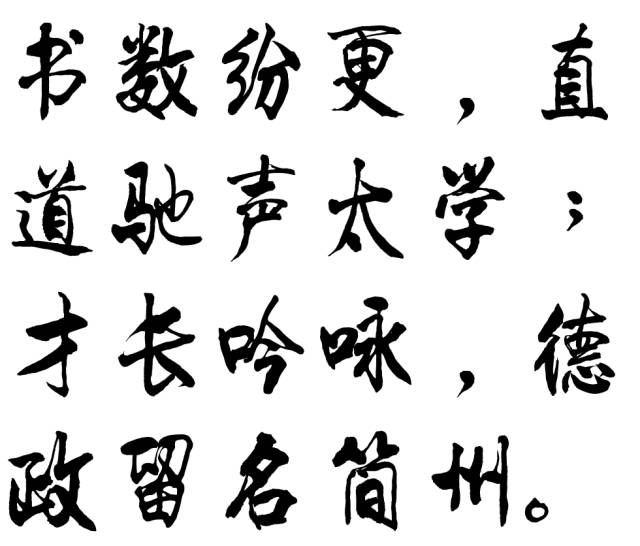 书数纷更，直
道驰声太学；
才长吟咏，德
政留名简州。